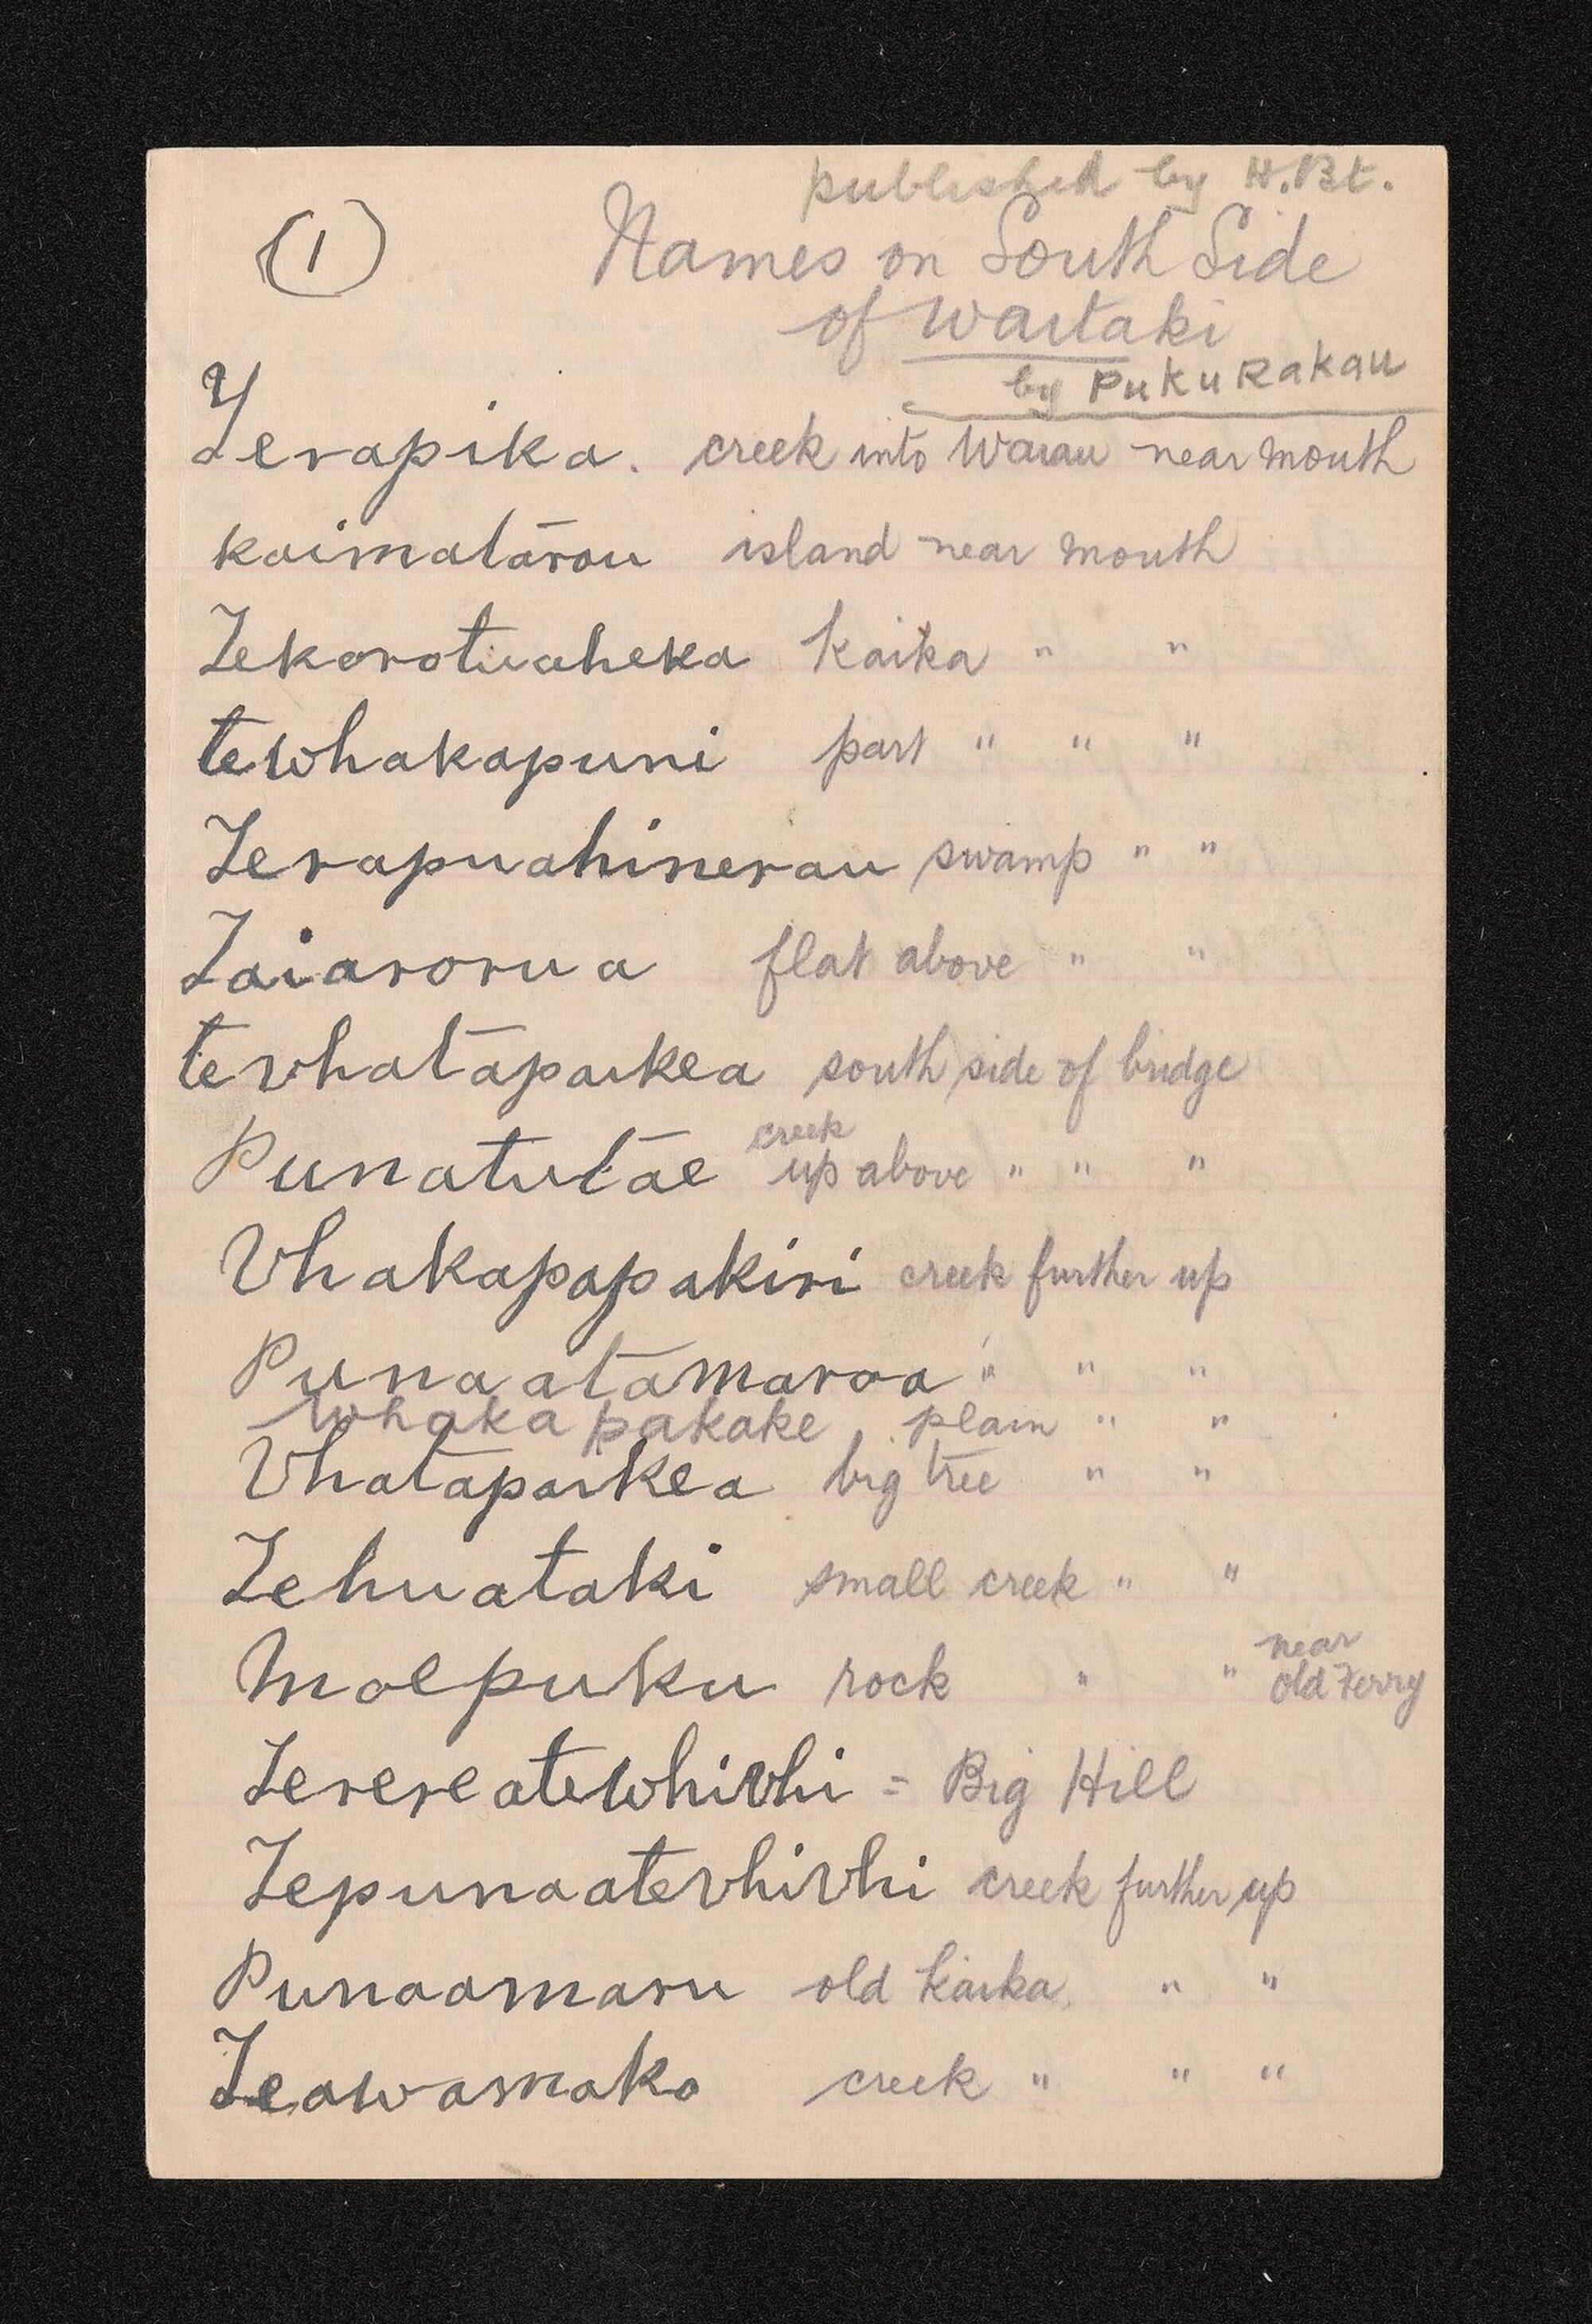 published by H.Bt.
(1) Names on South Side
of Waitaki
by PukuRakau
Terapika. creek into Waiau near mouth
kaimatārou island near mouth
Tekorotuaheka Kaika " "
tewhakapuni part " " "
Terapuahinerau swamp " "
Taiarorua flat above " "
tevhatapaikea south side of bridge
creek
Punatutae up above " " "
Vhakapapakiri creek further up
Punaatamaroa " " "
Whakapakake plain " "
Vhatapaikea big tree " "
Tehuataki small creek " "
near
Moepuku rock " " old Ferry
Terereatewhivhi = Big Hill
Tepunaatevhivhi creek further up
Punaomaru old kaika " "
Teawamako creek " " "